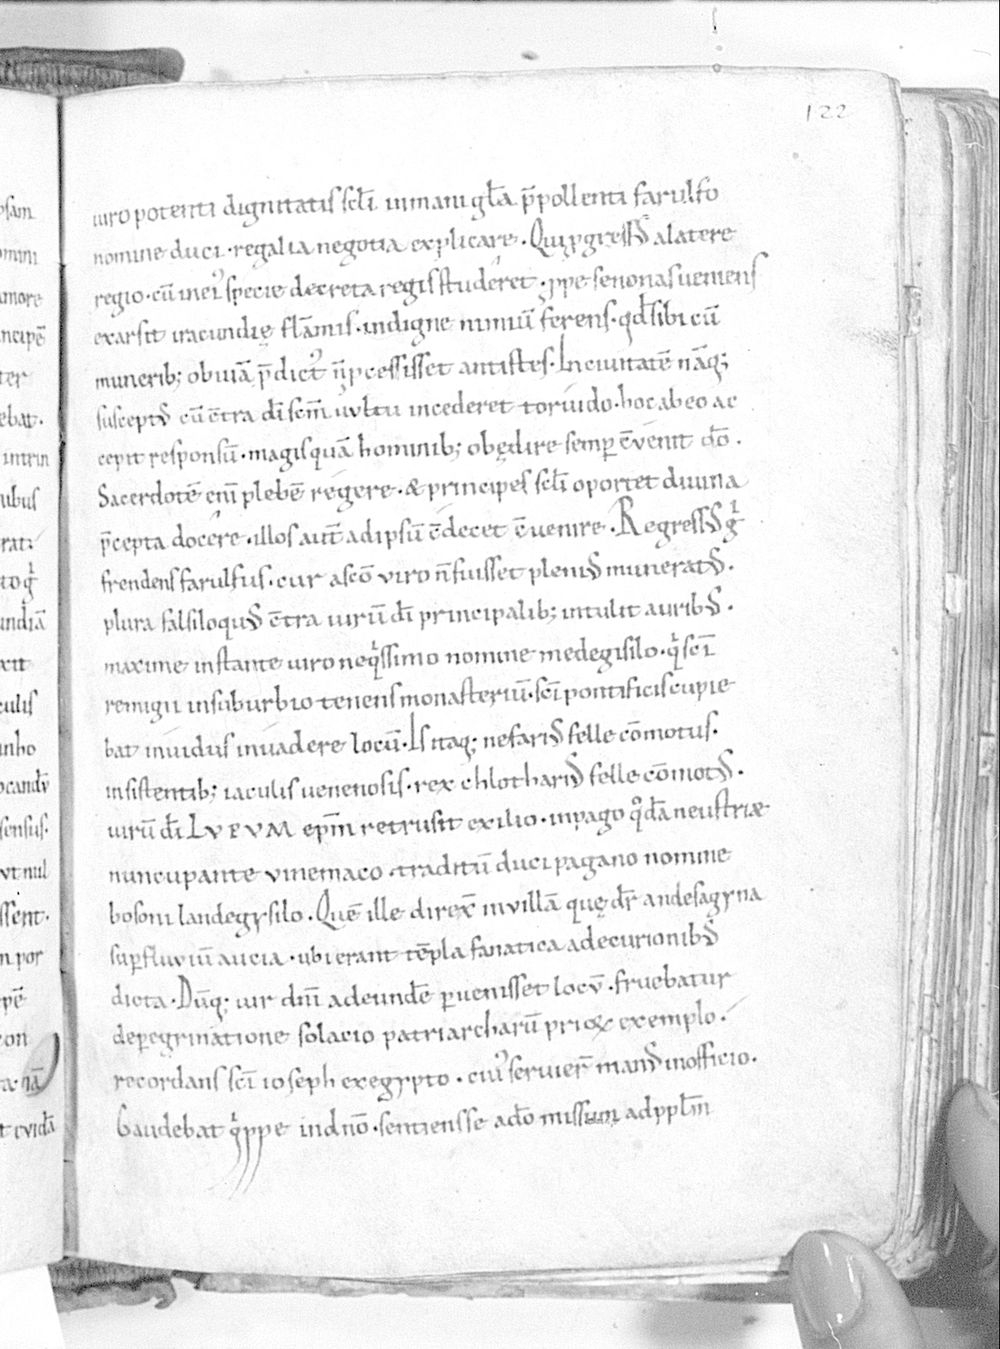 122
uiro potenti dignitatis scl̄i inmani gl̄a p̄pollenti farulfo
nomine duci · regalia negotia explicare . Qui ꝓgress᷒ a latere
regio · cū in ei᷒ specie decreta regis studeret · ꝓpe senonas ueniens
exarsit iracundię flāmis · indigne nimiū ferens · qđ sibi cū
munerib; obuiā p̄dict᷒ n̄ ꝓcessisset antistes · In ciuitatē nāq;
suscept᷒ cū c̄tra dī scm̄ uvltu incederet toruido · hoc ab eo ac
cepit responsū · magis quā hominib; obędire semꝑ c̄venit dō .
Sacerdotē eni plebē regere · & principes scl̄i oportet diuina
p̄cepta docere · illos aut̄ ad ipsū c̄decet c̄uenire . Regress᷒ gͥ
frendens farulfus · cur a scō viro n̄ fuisset pleni᷒ munerat᷒ .
plura falsiloqu᷒ c̄tra uirū dī principalib; intulit aurib᷒ .
maxime instante uiro neqͥssimo nomine medegisilo · qͥ scī
remigii in suburbio tenens monasteriū · scī pontificis cupie
bat inuidus inuadere locū · Is itaq; nefari᷒ felle cōmotus .
insistentib; iaculis uenenosis · rex chlothari᷒ felle cōmot᷒ .
uirū dī LVPVM epm̄ retrusit exilio · in pago qͦdā neustriæ
nuncupante vinemaco · traditū duci pagano nomine
bosoni landegysilo . Quē ille direx̄ in villā quę dr̄ andesagyna
suꝑ fluuiū aucia · ubi erant tēpla fanatica a decurionib᷒
dicta . Dūq; uir dnī ad eundē ꝑuenisset locv̄ · fruebatur
de ꝑegrinatione solacio patriarcharū priox exemplo .
recordans scī ioseph ex egypto . cui᷒ seruier̄ man᷒ in officio .
Gaudebat qͥppe in dnō · sentiens se a dō missum ad ppl̄m